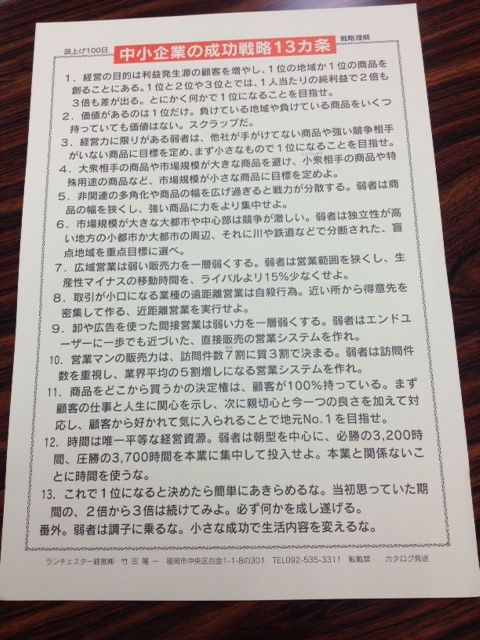 読上げ100日 中小企業の成功戦略13カ条 戦略理解
1. 経営の目的は利益発生源の顧客を増やし、1位の地域か1位の商品を
創ることにある。1位と2位や3位とでは、1人当たりの純利益で2倍も
3倍も差が出る。とにかく何かで1位になることを目指せ。
2. 価値があるのは1位だけ。負けている地域や負けている商品をいくつ
持っていても価値はない。スクラップだ。
3. 経営力に限りがある弱者は、他社が手がけてない商品や強い競争相手
がいない商品に目標を定め、まず小さなもので1位になることを目指せ。
4. 大衆相手の商品や市場規模が大きな商品を避け、小衆相手の商品や特
殊用途の商品など、市場規模が小さな商品に目標を定めよ。
5. 非関連の多角化や商品の幅を広げ過ぎると戦力が分散する。弱者は商
品の幅を狭くし、強い商品に力をより集中せよ。
6. 市場規模が大きな大都市や中心部は競争が激しい。弱者は独立性が高
い地方の小都市か大都市の周辺、それに川や鉄道などで分断された、盲
点地域を重点目標に選べ。
7. 広域営業は弱い販売力を一層弱くする。弱者は営業範囲を狭くし、生
産性マイナスの移動時間を、ライバルより15%少なくせよ。
8. 取引が小口になる業種の遠距離営業は自殺行為。近い所から得意先を
密集して作る、近距離営業を実行せよ。
9. 卸や広告を使った間接営業は弱い力を一層弱くする。弱者はエンドユ
ーザーに一歩でも近づいた、直接販売の営業システムを作れ。
10. 営業マンの販売力は、訪問件数7割に質3割で決まる。弱者は訪問件
数を重視し、業界平均の5割増しになる営業システムを作れ。
11. 商品をどこから買うかの決定権は、顧客が100%持っている。まず
顧客の仕事と人生に関心を示し、次に親切心と今一つの良さを加えて対
応し、顧客から好かれて気に入られることで地元No.1を目指せ。
12. 時間は唯一平等な経営資源。弱者は朝型を中心に、必勝の3,200時
間、圧勝の3,700時間を本業に集中して投入せよ。本業と関係ないこ
とに時間を使うな。
13. これで1位になると決めたら簡単にあきらめるな。当初思っていた期
間の、2倍から3倍は続けてみよ。必ず何かを成し遂げる。
番外。弱者は調子に乗るな。小さな成功で生活内容を変えるな。
ランチェスター経営㈱ 竹田陽一 福岡市中央区白金1-1-8の301 TEL092-535-3311 転載禁 カタログ発送